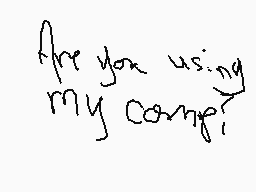 Are you using
my comp?